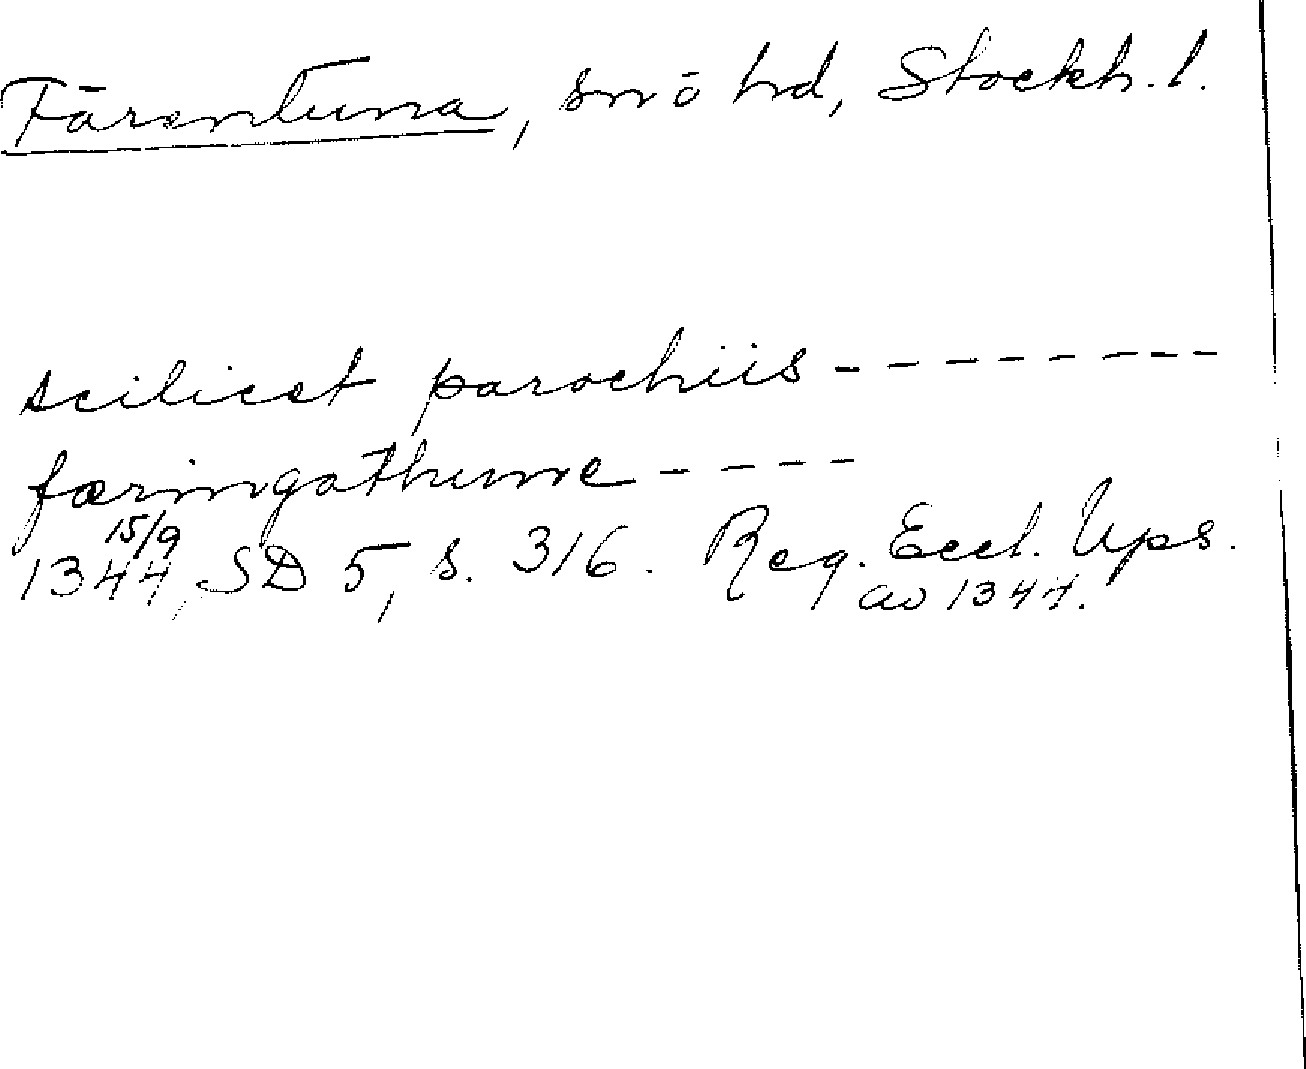 Färentuna, sn ö hd, Stockh. l.
scilicet parochiis - - - - - - - -
færingathune - - - -
15/9
1344, SD 5, s. 316. Reg. Eccl. Ups.
av 1344.